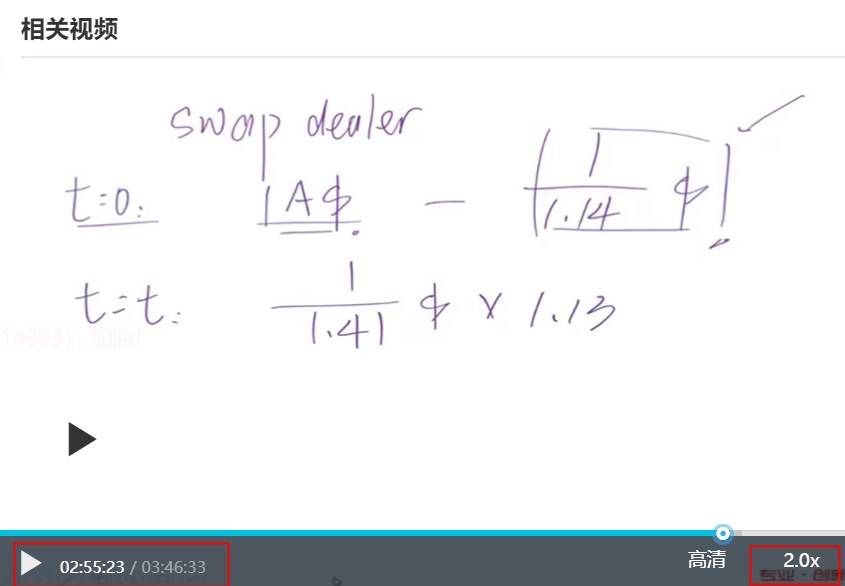 相关视频
swap dealer
t=0: 1A$ — 1/1.14 $
t=t: 1/1.41 $ × 1.13
14393）,加油!
02:55:23 / 03:46:33 高清 2.0x
专业·创新